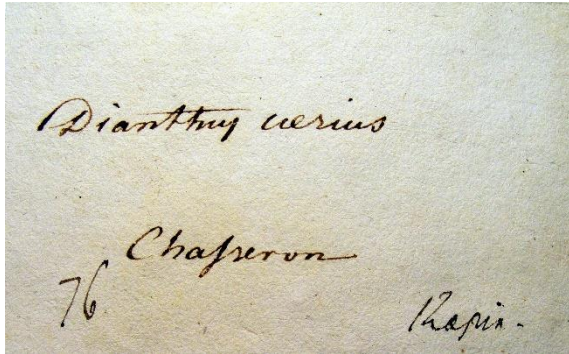 Dianthus cæsius
Chasseron
76
Rapin.